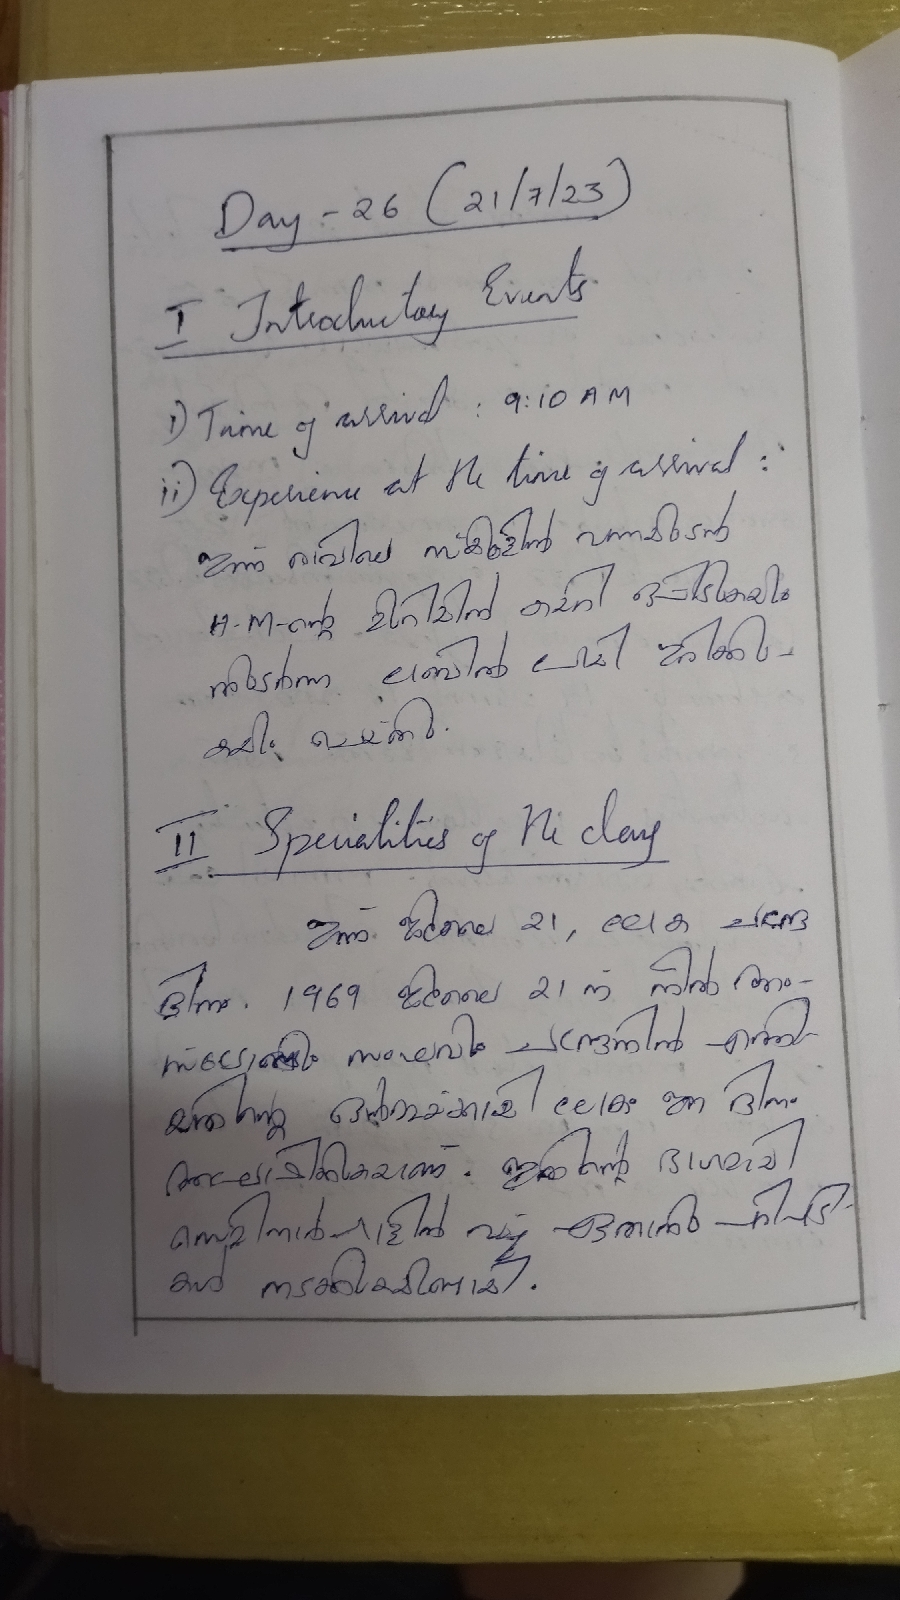 Day - 26 (21/7/23)
I Introductory Events
i) Time of arrival : 9:10 AM
ii) Experience at the time of arrival :
ഇന്ന് രാവിലെ സ്കൂളിൽ വന്നയുടൻ
H.M-ന്റെ മുറിയിൽ കയറി ഒപ്പിടുകയും
തുടർന്ന് ലാബിൽ പോയി ഇരിക്കു-
കയും ചെയ്തു.
II Specialities of the day
ഇന്ന് ജൂലൈ 21, ലോക ചാന്ദ്ര
ദിനം. 1969 ജൂലൈ 21 ന് നീൽ ആം-
സ്ട്രോങ്ങും സംഘവും ചന്ദ്രനിൽ എത്തി-
യതിന്റെ ഓർമയ്ക്കായി ലോകം ഈ ദിനം
ആഘോഷിക്കുകയാണ്. ഇതിന്റെ ഭാഗമായി
സെമിനാർ ഹാളിൽ വച്ച് ഏതാനും പരിപാടി-
കൾ നടക്കുകയുണ്ടായി.